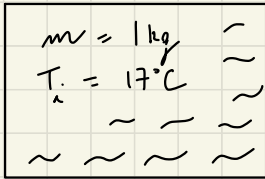 m = 1 kg
Ti = 17°C